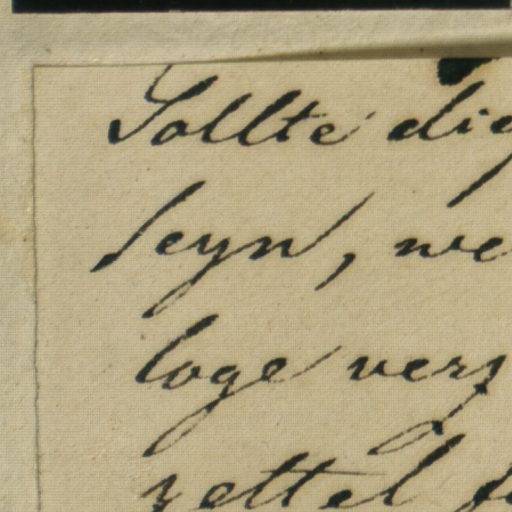 Sollte die
seyn, we
loge vers
zettel